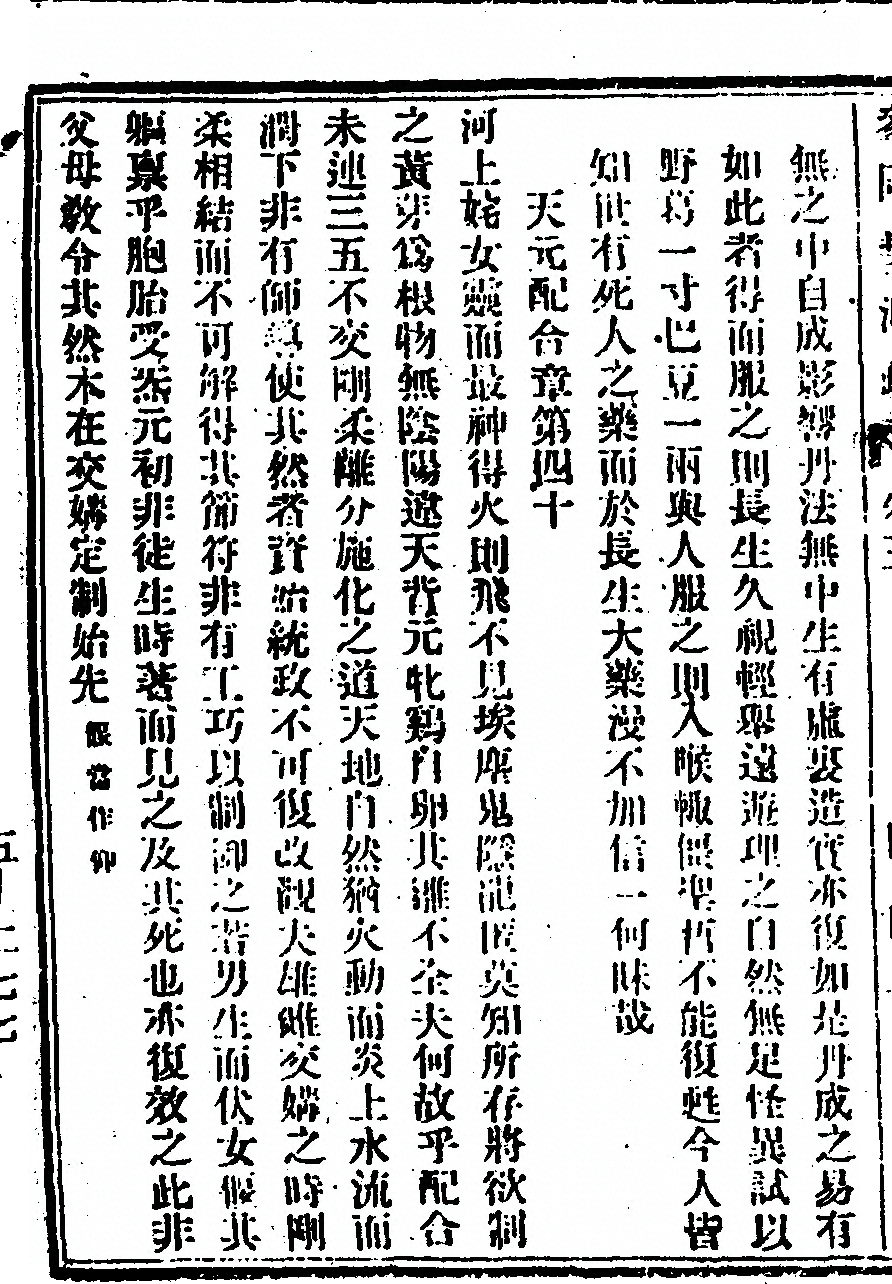 無之中自成影響丹法無中生有虛裏造實亦復如是丹成之易有
如此者得而服之則長生久視輕舉遠遊理之自然無足怪異試以
野葛一寸巴豆一兩與人服之則入喉輒僵聖哲不能復甦今人皆
知世有死人之藥而於長生大藥漫不加信一何昧哉
天元配合章第四十
河上姹女靈而最神得火則飛不見埃塵鬼隱龍匿莫知所存將欲制
之黃芽為根物無陰陽違天背元牝鷄自卵其雛不全夫何故乎配合
未連三五不交剛柔離分施化之道天地自然猶火動而炎上水流而
潤下非有師導使其然者資始統政不可復改觀夫雄雌交媾之時剛
柔相結而不可解得其節符非有工巧以制御之若男生而伏女偃其
軀稟乎胞胎受炁元初非徒生時著而見之及其死也亦復效之此非
父母教令其然本在交媾定制始先偃當作仰